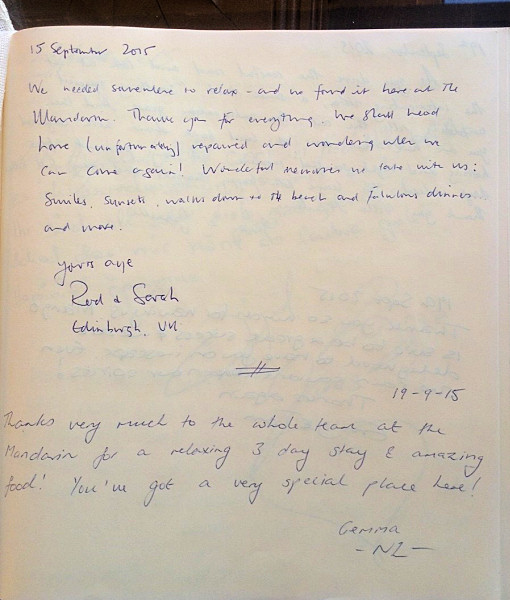 15 September 2015
We needed somewhere to relax - and we found it here at the
Mandarin. Thank you for everything. We shall head
home (unfortunately) repaired and wondering when we
can come again! Wonderful memories we take with us:
Smiles, sunsets, walks down to the beach and fabulous dinners
and more.
yours aye
Rod & Sarah
Edinburgh, UK
19-9-15
Thanks very much to the whole team at the
Mandarin for a relaxing 3 day stay & amazing
food! You've got a very special place here!
Gemma
- NZ -